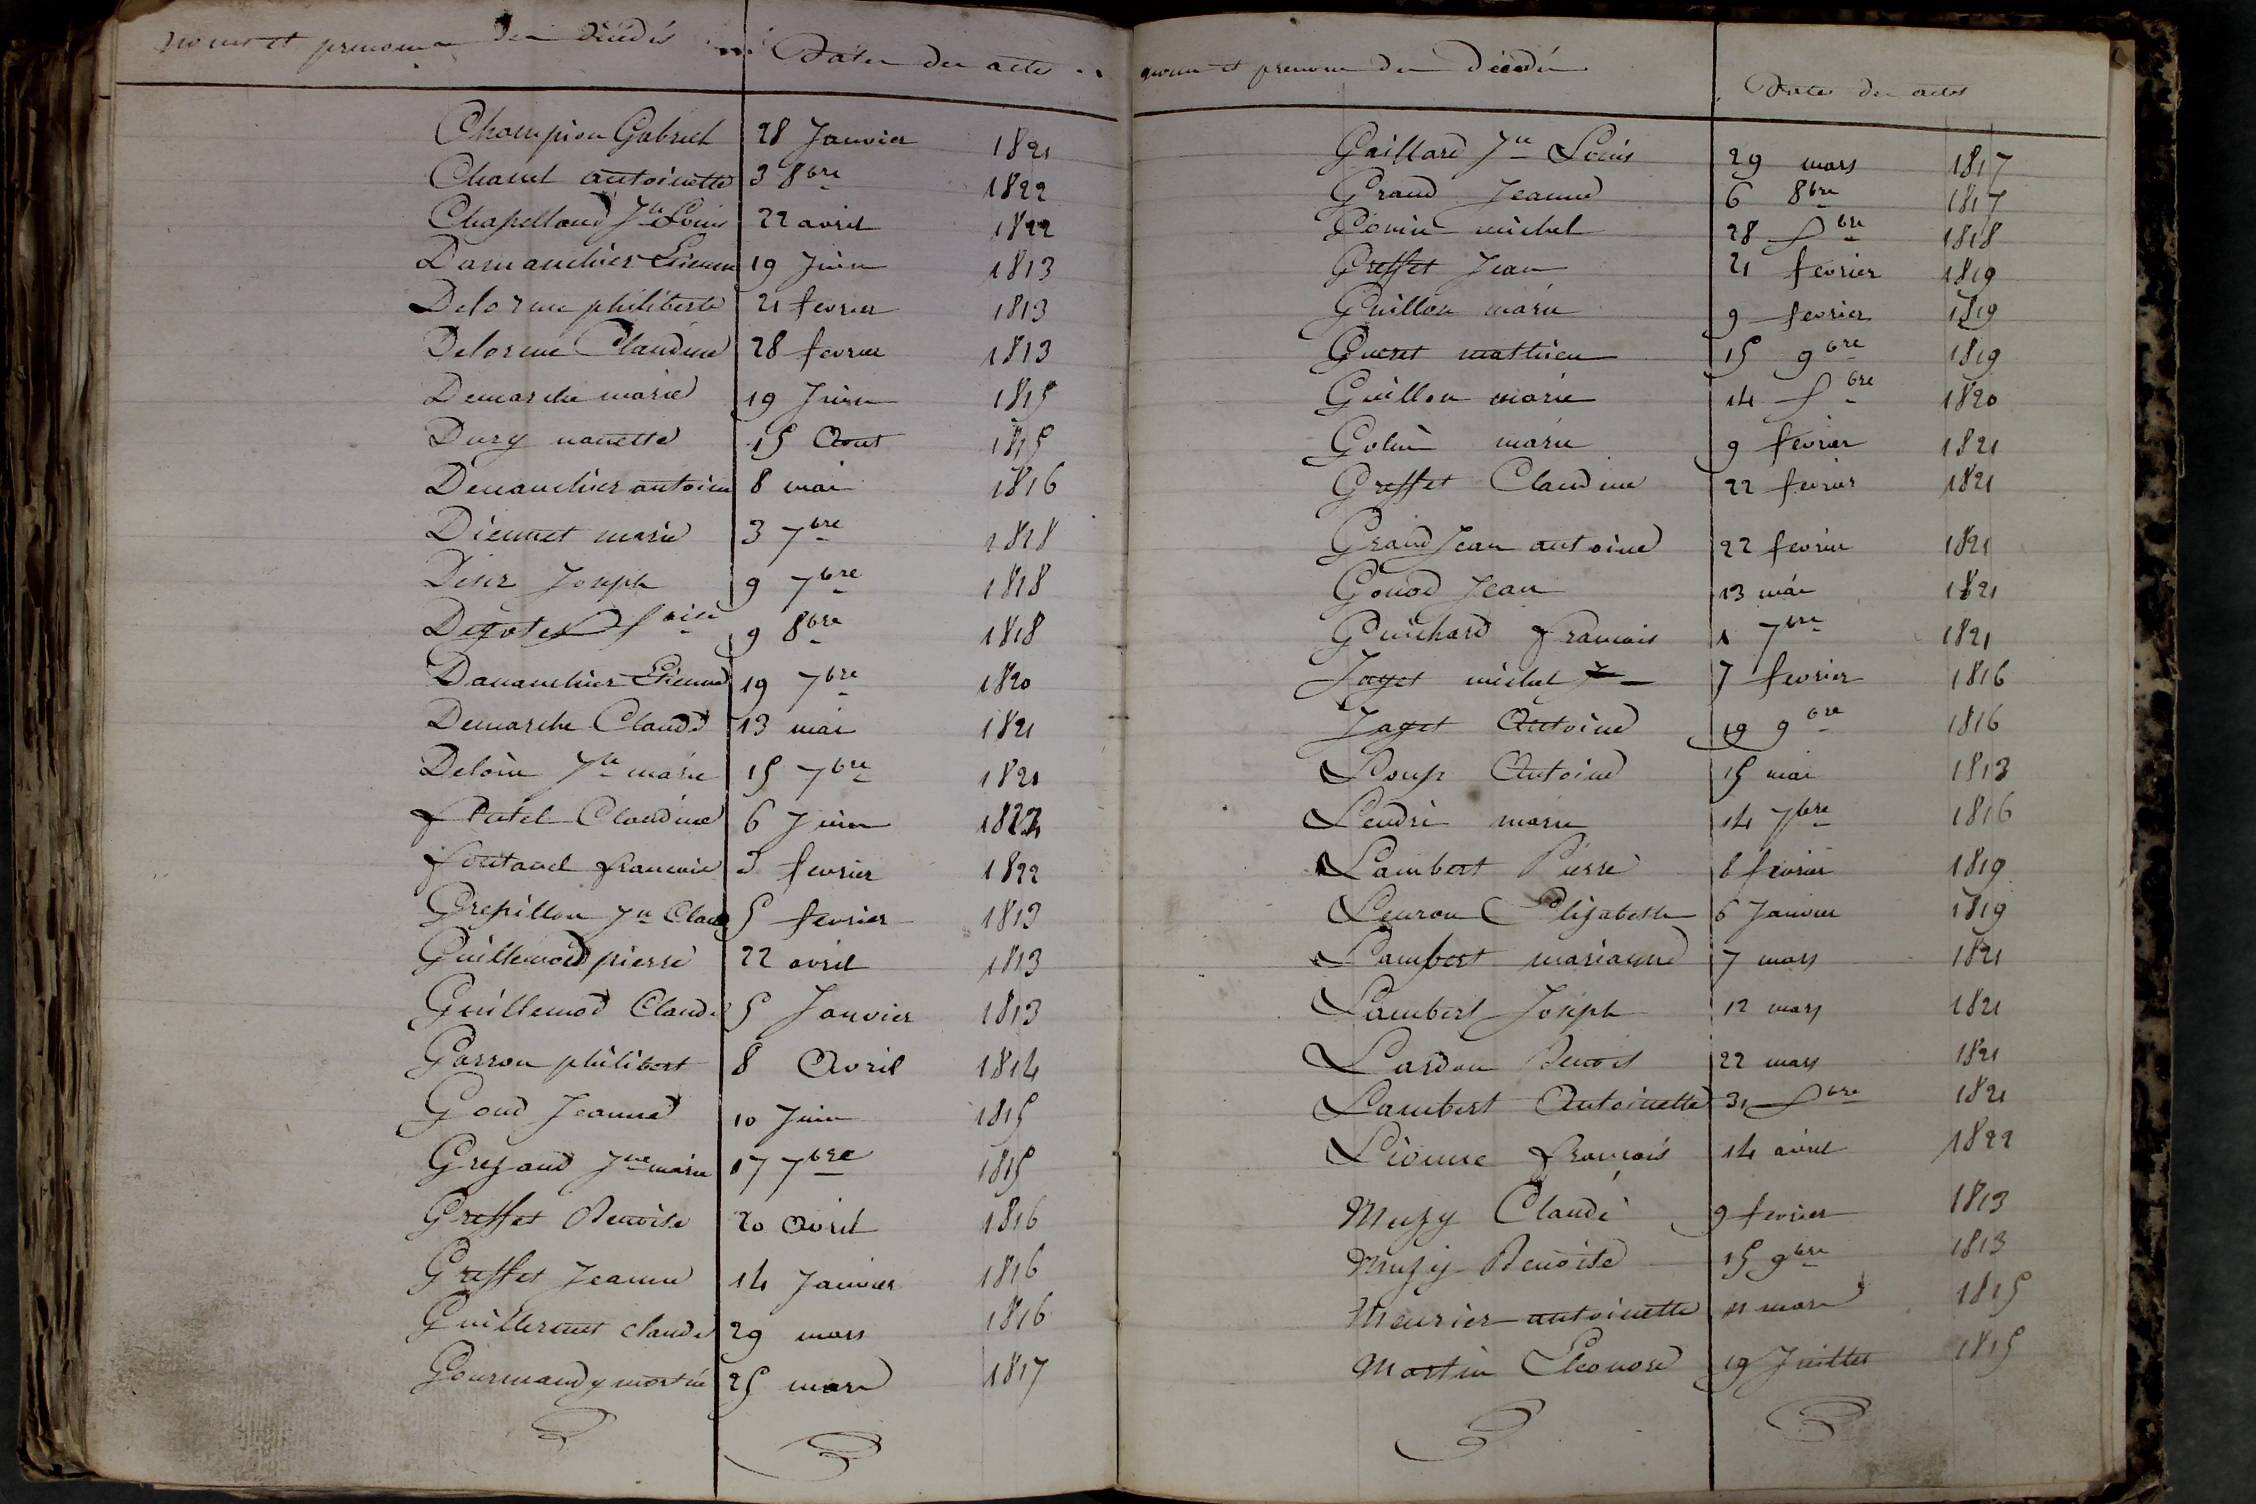 noms et prenoms des Décédés
Dates des actes
Champion Gabriel 28 Janvier 1821
Chanel antoinette 3 8bre 1822
Chapelland Jn Louis 22 avril 1822
Damanchier Etienne 19 Juin 1813
Delorme philiberte 21 fevrier 1813
Delorme Claudine 28 fevrier 1813
Demarche marie 19 Juin 1815
Dury nanette 15 Aout 1815
Denanchier antoine 8 mai 1816
Diennet marie 3 7bre 1818
Desir Joseph 9 7bre 1818
Degotes 9 8bre 1818
Dananchier Etienne 19 7bre 1820
Demarche Claude 13 mai 1821
Deloin Jn marie 15 7bre 1821
flatel Claudine 6 Juin 1822
fontanel francoise 3 fevrier 1822
Grepillon Jn Claude 5 fevrier 1813
Guillemod pierre 22 avril 1813
Guillemod Claude 5 Janvier 1813
Garron philibert 8 Avril 1814
Goud Jeanne 10 Juin 1815
Grezaud Jne marie 17 7bre 1815
Greffet Benoite 20 Avril 1816
Greffet Jeanne 14 Janvier 1816
Guillermet claude 29 mars 1816
Gourmandy mort né 25 mars 1817
noms et prenoms des Décédés
Dates des actes
Gaillard Jn Louis 29 mars 1817
Grand Jeanne 6 8bre 1817
michel 28 Xbre 1818
Greffet Jean 21 fevrier 1819
Guillon marie 9 fevrier 1819
Gueret mathieu 15 9bre 1819
Guillon marie 14 Xbre 1820
Golin marie 9 fevrier 1821
Greffet Claudine 22 fevrier 1821
GrandJean antoine 22 fevrier 1821
Gonod Jean 13 mai 1821
Guichard francois 1 7bre 1821
Jayet michel 7 fevrier 1816
Jayet Antoine 19 9bre 1816
Loup Antoine 15 mai 1813
Lendri marie 14 7bre 1816
Lambert Pierre 8 fevrier 1819
Leuron Elizabeth 6 Janvier 1819
Lambert marianne 7 mars 1821
Lambert Joseph 12 mars 1821
Lardon Benoit 22 mars 1821
Lambert Antoinette 31 Xbre 1821
Lionne françois 14 avril 1822
Muzy Claude 9 fevrier 1813
Muzy Benoite 15 9bre 1813
Meurier antoinette 11 mars 1815
Martin Eleonore 19 Juillet 1815